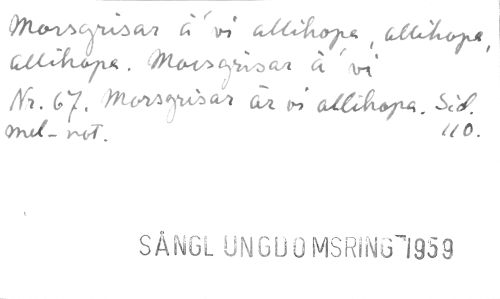 Morsgrisar ä' vi allihopa, allihopa,
allihopa. Morsgrisar ä' vi
Nr. 67. Morsgrisar är vi allihopa. Sid.
mel-not. 110.
SÅNGL UNGDOMSRING 1959